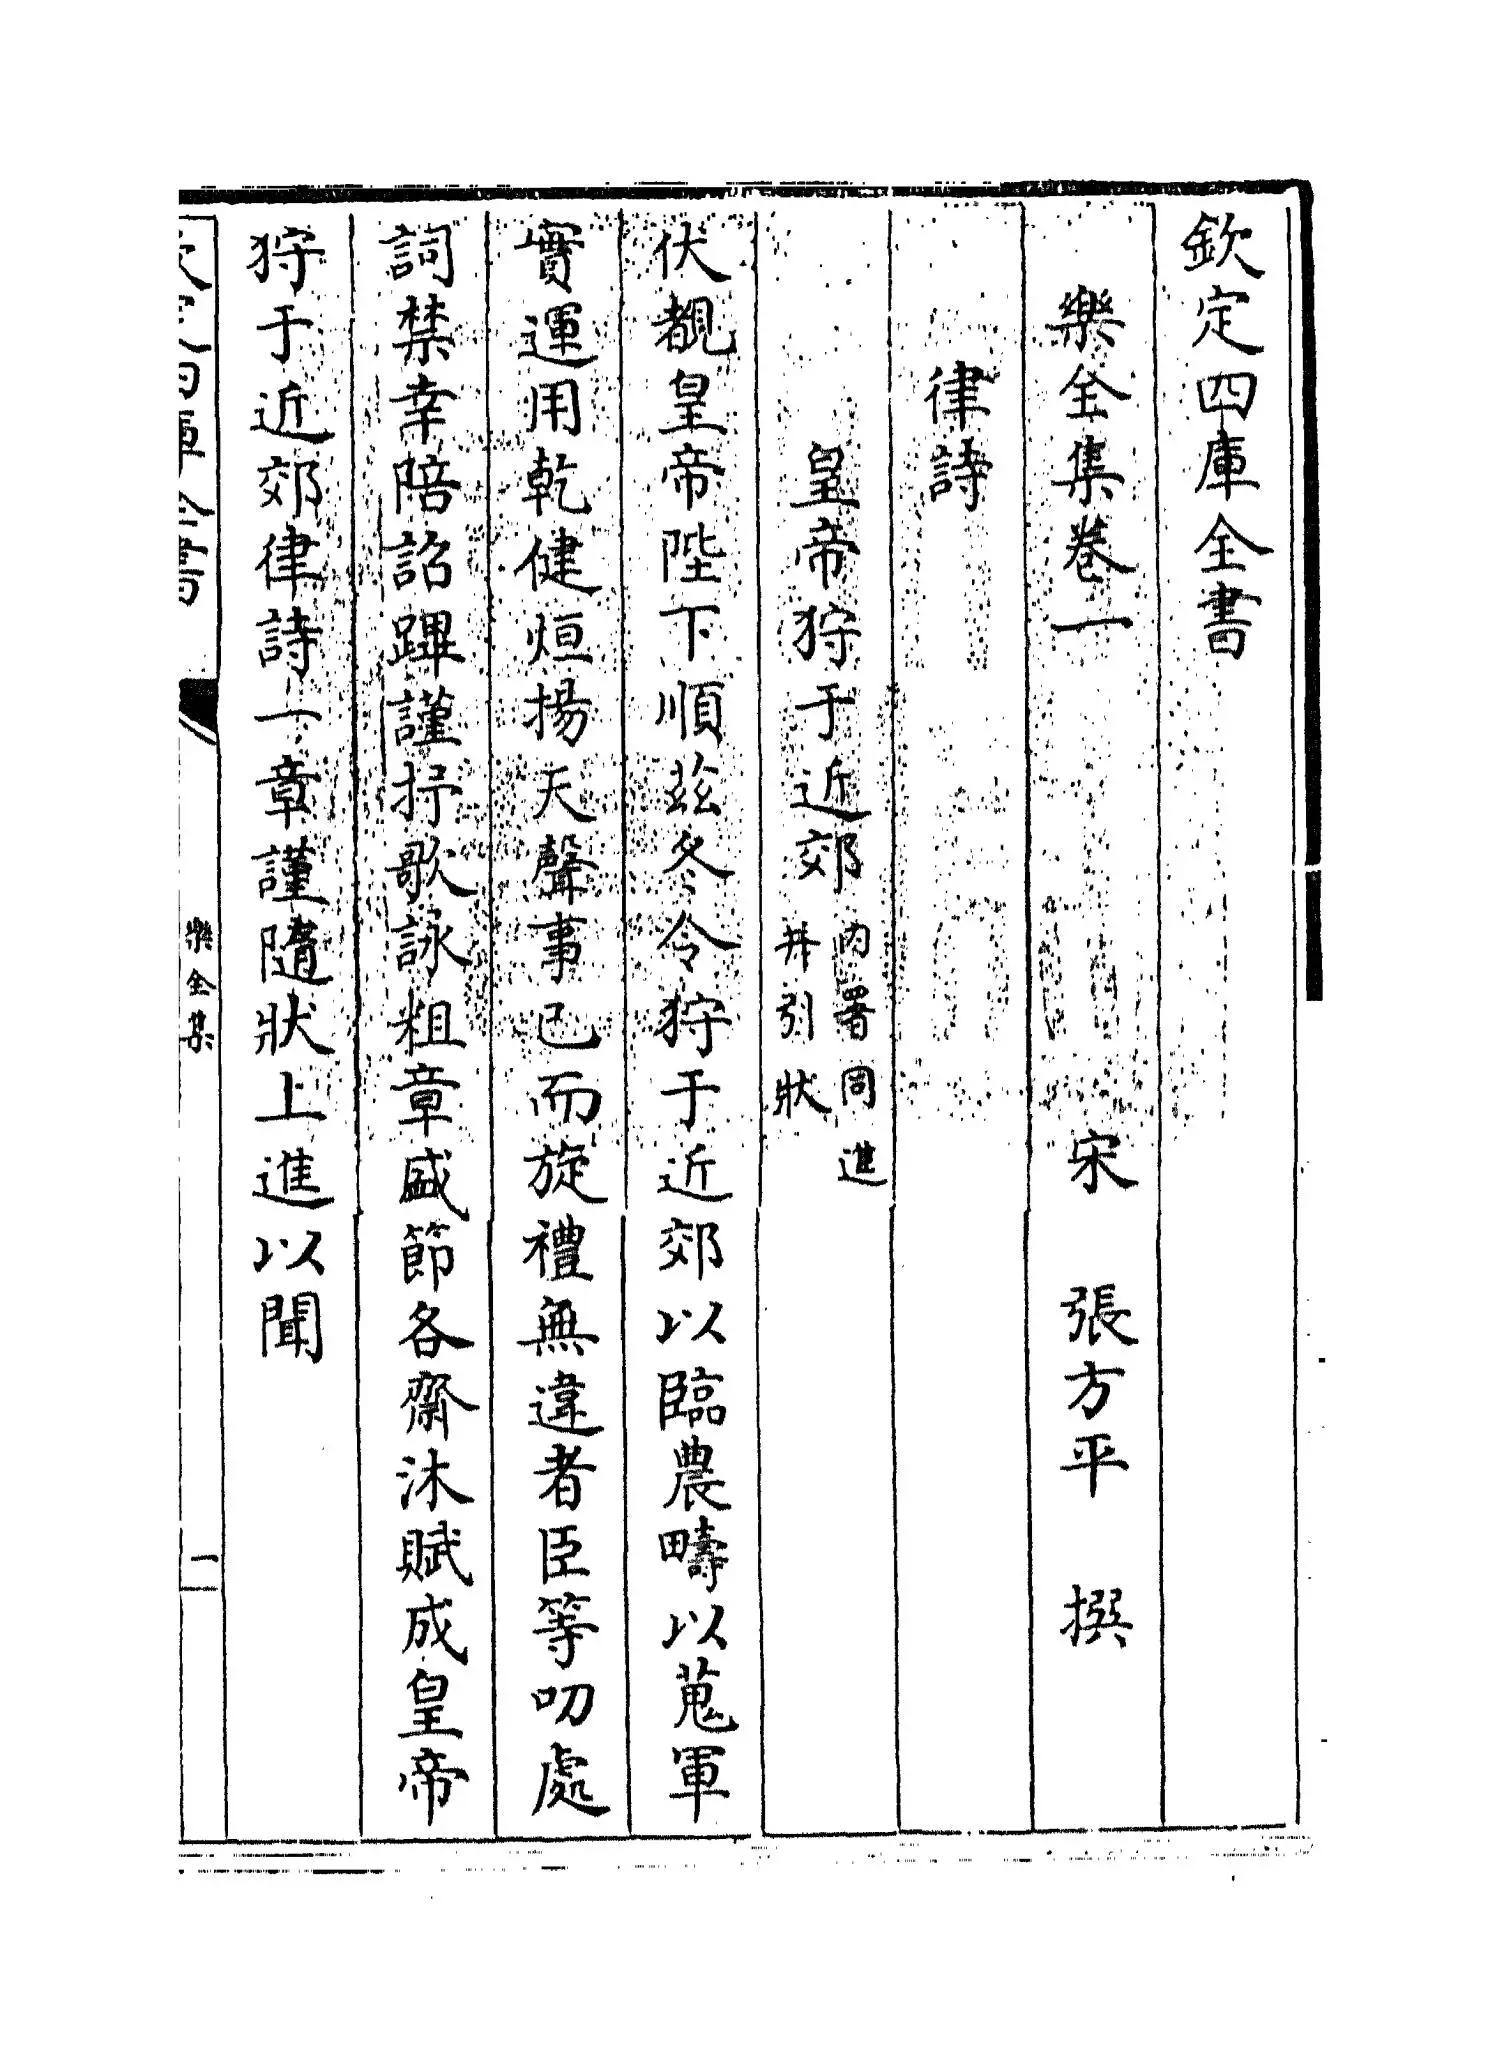 欽定四庫全書
樂全集卷一
宋 張方平 撰
律詩
皇帝狩于近郊 內署同進
并引狀
伏覩皇帝陛下順茲冬令狩于近郊以臨農疇以蒐軍
實運用乾健烜揚天聲事已而旋禮無違者臣等叨處
詞禁幸陪詔蹕謹抒歌詠粗章盛節各齋沐賦成皇帝
狩于近郊律詩一章謹隨狀上進以聞
樂全集
一